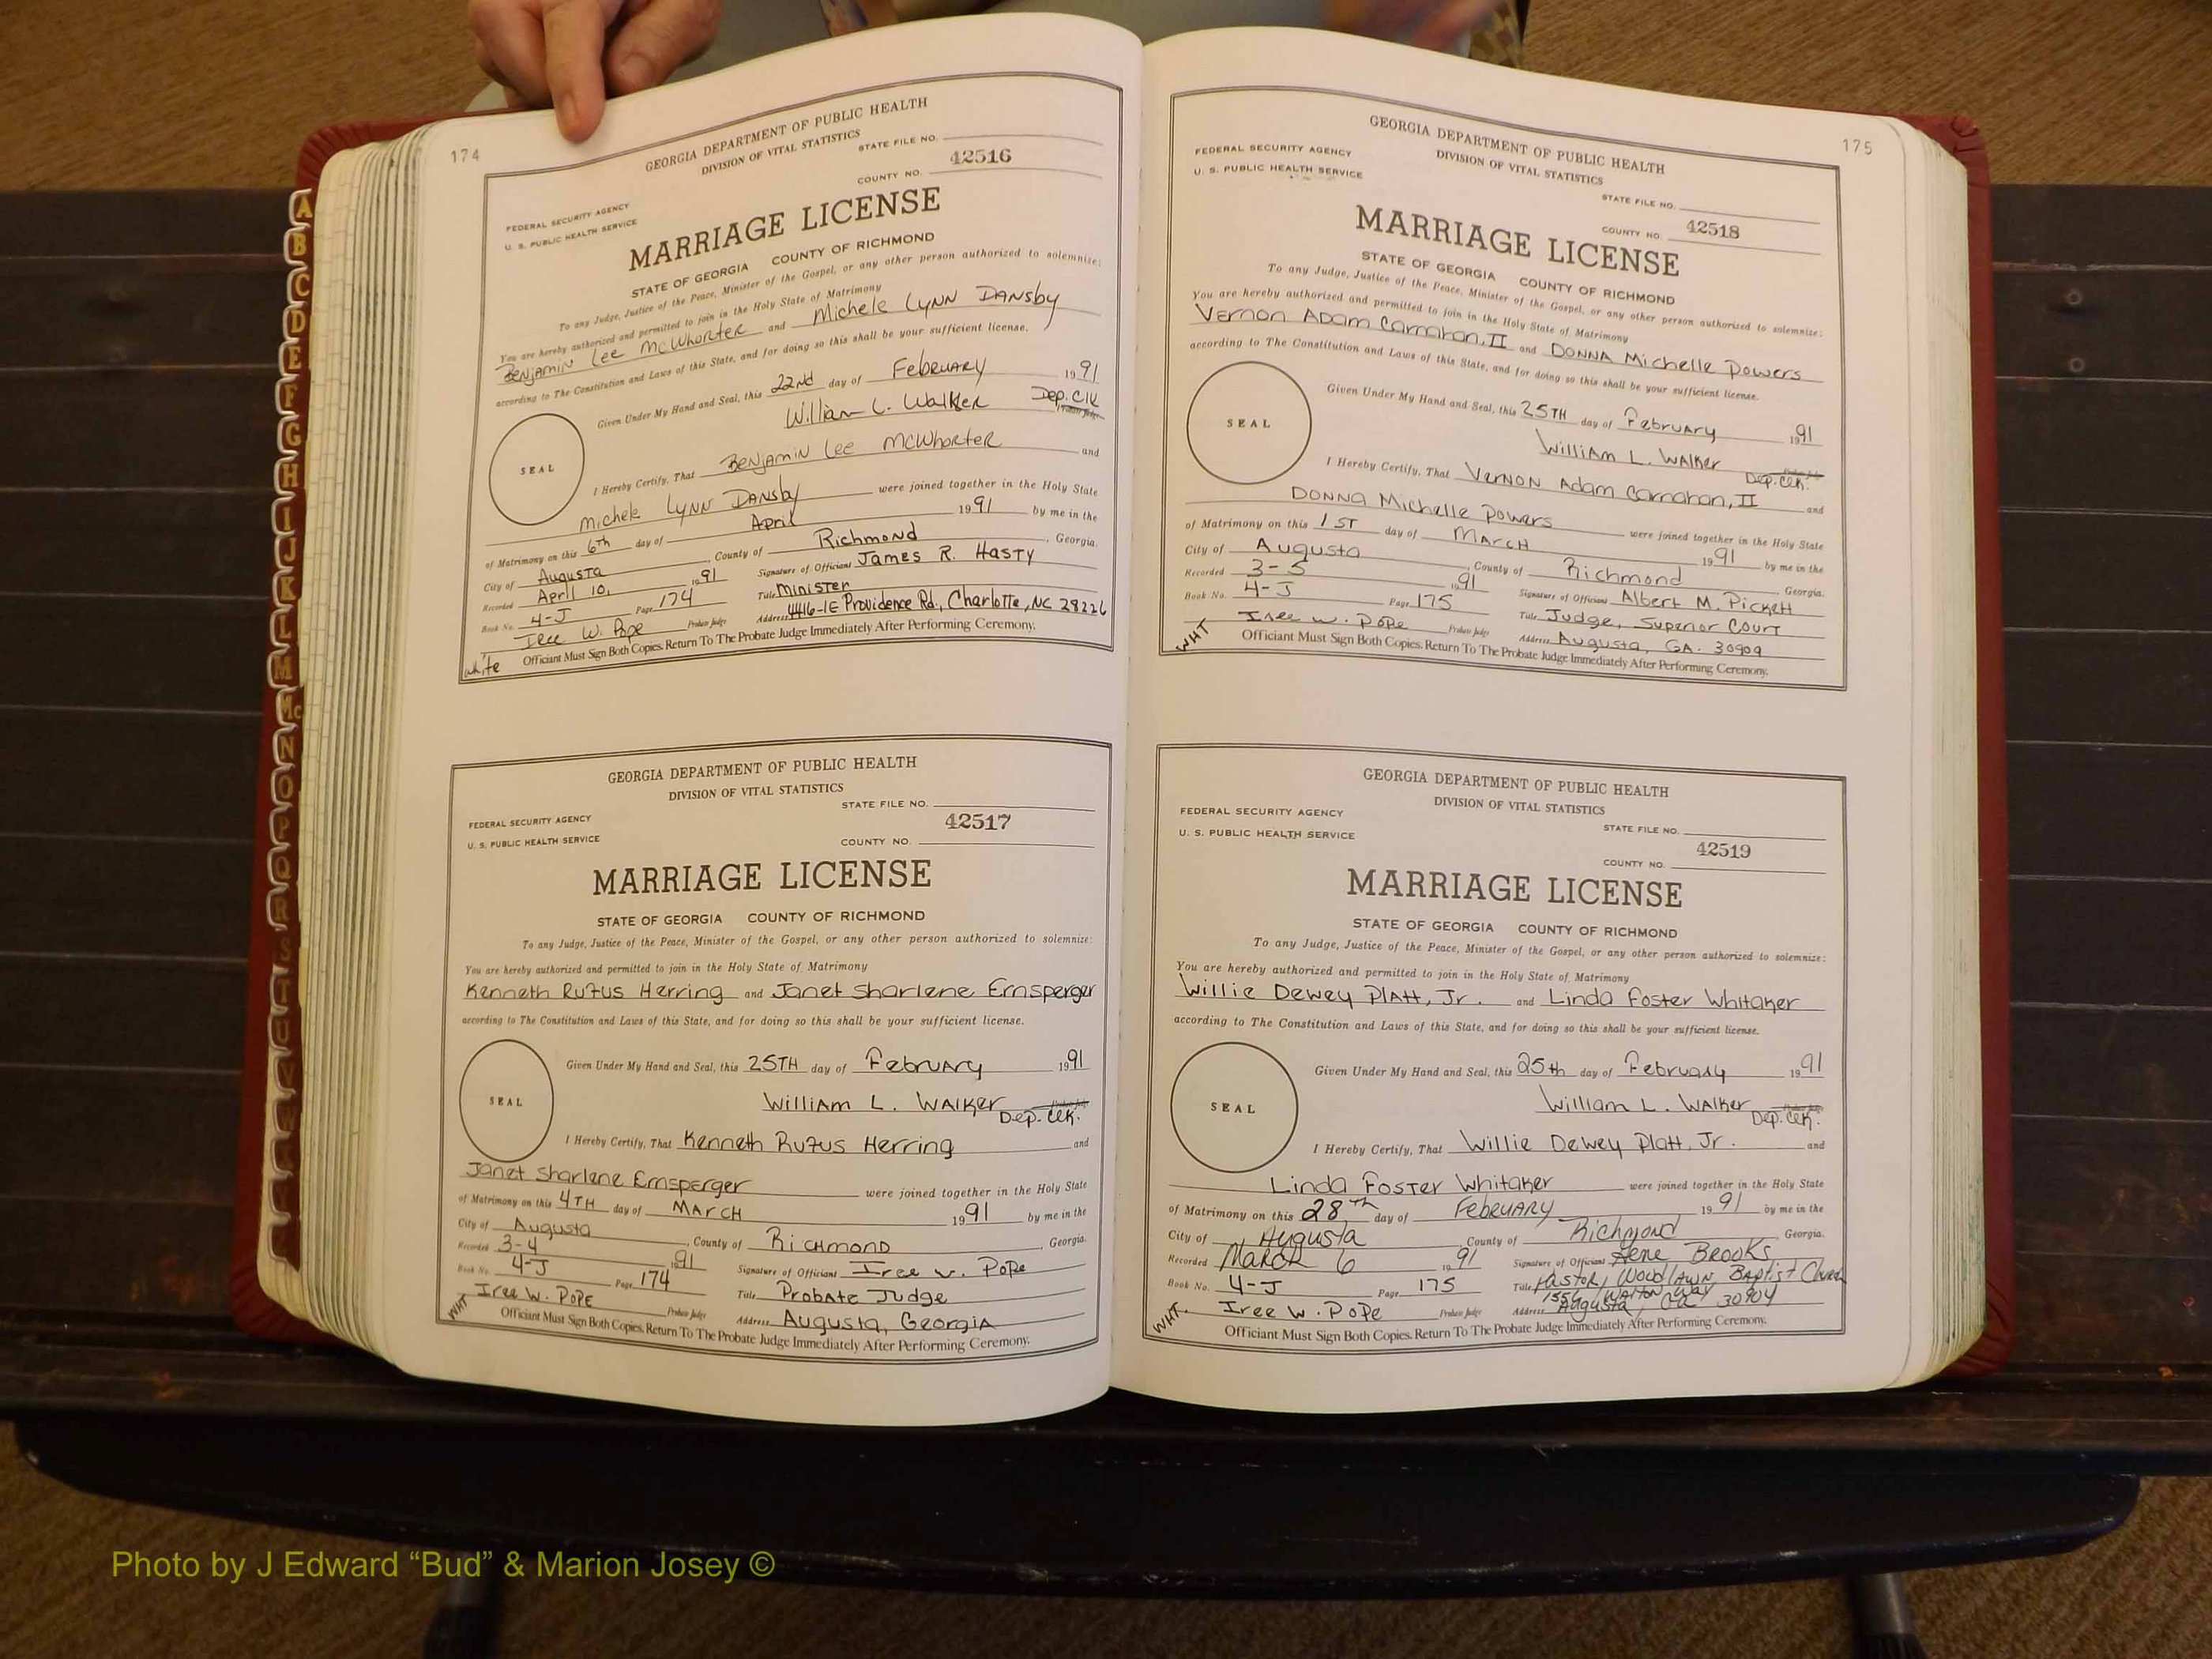 174
GEORGIA DEPARTMENT OF PUBLIC HEALTH
DIVISION OF VITAL STATISTICS
STATE FILE NO.
42516
COUNTY NO.
FEDERAL SECURITY AGENCY
U. S. PUBLIC HEALTH SERVICE
MARRIAGE LICENSE
STATE OF GEORGIA COUNTY OF RICHMOND
To any Judge, Justice of the Peace, Minister of the Gospel, or any other person authorized to solemnize:
You are hereby authorized and permitted to join in the Holy State of Matrimony
Benjamin Lee McWhorter and Michele Lynn Dansby
according to The Constitution and Laws of this State, and for doing so this shall be your sufficient license.
Given Under My Hand and Seal, this 22nd day of February 1991
William L. Walker Dep. Clk
Probate Judge
SEAL
I Hereby Certify, That Benjamin Lee McWhorter and
Michele Lynn Dansby were joined together in the Holy State
of Matrimony on this 6th day of April 1991 by me in the
City of Augusta, County of Richmond, Georgia.
Recorded April 10, 1991 Signature of Officiant James R. Hasty
Book No. 4-J Page 174 Title Minister
Iree W. Pope Probate Judge Address 4416-1E Providence Rd., Charlotte, NC 28226
white Officiant Must Sign Both Copies. Return To The Probate Judge Immediately After Performing Ceremony.
GEORGIA DEPARTMENT OF PUBLIC HEALTH
DIVISION OF VITAL STATISTICS
STATE FILE NO.
42517
FEDERAL SECURITY AGENCY
U. S. PUBLIC HEALTH SERVICE
COUNTY NO.
MARRIAGE LICENSE
STATE OF GEORGIA COUNTY OF RICHMOND
To any Judge, Justice of the Peace, Minister of the Gospel, or any other person authorized to solemnize:
You are hereby authorized and permitted to join in the Holy State of Matrimony
Kenneth Rufus Herring and Janet Sharlene Ernsperger
according to The Constitution and Laws of this State, and for doing so this shall be your sufficient license.
Given Under My Hand and Seal, this 25TH day of February 1991
William L. Walker
Probate Judge
Dep. Clk.
SEAL
I Hereby Certify, That Kenneth Rufus Herring and
Janet Sharlene Ernsperger were joined together in the Holy State
of Matrimony on this 4TH day of March 1991 by me in the
City of Augusta, County of Richmond, Georgia.
Recorded 3-4 1991 Signature of Officiant Iree W. Pope
Book No. 4-J Page 174 Title Probate Judge
Iree W. Pope Probate Judge Address Augusta, Georgia
WHT Officiant Must Sign Both Copies. Return To The Probate Judge Immediately After Performing Ceremony.
175
GEORGIA DEPARTMENT OF PUBLIC HEALTH
DIVISION OF VITAL STATISTICS
FEDERAL SECURITY AGENCY
U. S. PUBLIC HEALTH SERVICE
STATE FILE NO.
42518
COUNTY NO.
MARRIAGE LICENSE
STATE OF GEORGIA COUNTY OF RICHMOND
To any Judge, Justice of the Peace, Minister of the Gospel, or any other person authorized to solemnize:
You are hereby authorized and permitted to join in the Holy State of Matrimony
Vernon Adam Carnahan, II and Donna Michelle Powers
according to The Constitution and Laws of this State, and for doing so this shall be your sufficient license.
Given Under My Hand and Seal, this 25TH day of February 1991
William L. Walker
Probate Judge
Dep. Clk.
SEAL
I Hereby Certify, That Vernon Adam Carnahan, II and
Donna Michelle Powers were joined together in the Holy State
of Matrimony on this 1ST day of March 1991 by me in the
City of Augusta, County of Richmond Georgia.
Recorded 3-5 1991 Signature of Officiant Albert M. Pickett
Book No. 4-J Page 175 Title Judge, Superior Court
Iree W. Pope Probate Judge Address Augusta, GA. 30909
WHT Officiant Must Sign Both Copies. Return To The Probate Judge Immediately After Performing Ceremony.
GEORGIA DEPARTMENT OF PUBLIC HEALTH
DIVISION OF VITAL STATISTICS
FEDERAL SECURITY AGENCY
U. S. PUBLIC HEALTH SERVICE
STATE FILE NO.
42519
COUNTY NO.
MARRIAGE LICENSE
STATE OF GEORGIA COUNTY OF RICHMOND
To any Judge, Justice of the Peace, Minister of the Gospel, or any other person authorized to solemnize:
You are hereby authorized and permitted to join in the Holy State of Matrimony
Willie Dewey Platt, Jr. and Linda Foster Whitaker
according to The Constitution and Laws of this State, and for doing so this shall be your sufficient license.
Given Under My Hand and Seal, this 25th day of February 1991
William L. Walker
Probate Judge
Dep. Clk.
SEAL
I Hereby Certify, That Willie Dewey Platt, Jr. and
Linda Foster Whitaker were joined together in the Holy State
of Matrimony on this 28th day of February 1991 by me in the
City of Augusta County of Richmond Georgia.
Recorded March 6 1991 Signature of Officiant Brooks
Book No. 4-J Page 175 Title Pastor, Woodlawn Baptist Church
1556 Walton Way
Iree W. Pope Probate Judge Address Augusta, GA 30904
WHT. Officiant Must Sign Both Copies. Return To The Probate Judge Immediately After Performing Ceremony.
A
B
C
D
E
F
G
H
I
J
K
L
M
Mc
N
O
P
Q
R
S
T
U
V
Photo by J Edward “Bud” & Marion Josey ©